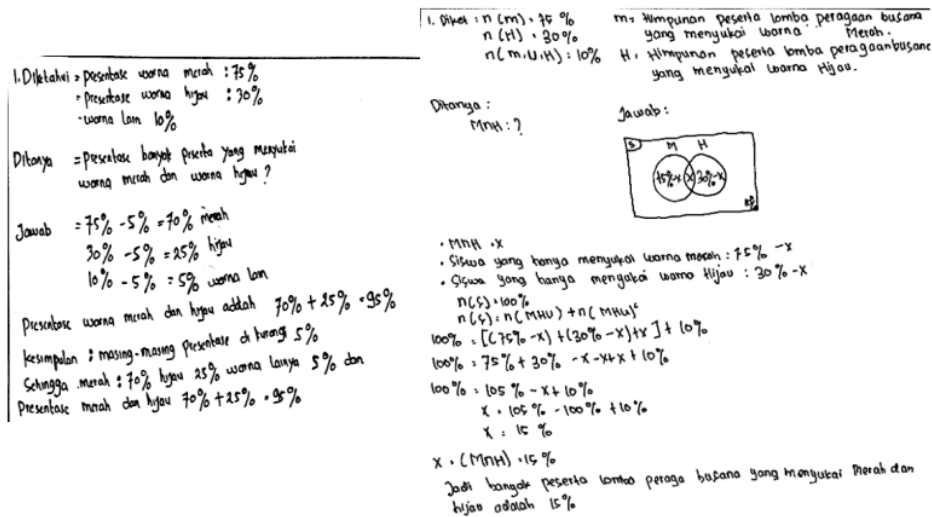 1. Diketahui = presentase warna merah : 75%
= Presentase warna hijau : 30%
- warna lain 10%
Ditanya = Presentase banyak peserta yang menyukai
warna merah dan warna hijau ?
Jawab = 75% - 5% = 70% merah
30% - 5% = 25% hijau
10% - 5% = 5% warna lain
Presentase warna merah dan hijau adalah 70% + 25% = 95%
kesimpulan : masing-masing presentase di kurang 5%
Sehingga merah : 70% hijau 25% warna lainya 5% dan
Presentase merah dan hijau 70% + 25% = 95%
1. Diket : n (m) = 75 %
n (H) = 30%
n( m.U.H) : 10%
m = Himpunan Peserta lomba peragaan busana
yang menyukai warna Merah.
H = Himpunan peserta lomba peragaan busana
yang menyukai warna Hijau.
Ditanya :
M∩H : ?
Jawab :
S M H
75%-x x 30%-x
• M∩H = x
• Siswa yang hanya menyukai warna merah : 75% - x
• Siswa yang hanya menyukai warna Hijau : 30% - x
n(S) = 100%
n(S) = n( MHU) + n( MHU)ᶜ
100% = [(75% - x) + (30% - x) + x ] + 10%
100% = 75% + 30% - x - x + x + 10%
100% = 105 % - x + 10%
x = 105 % - 100% + 10%
x = 15 %
x = (M∩H) = 15%
Jadi banyak peserta lomba peraga busana yang menyukai Merah dan
hijau adalah 15%